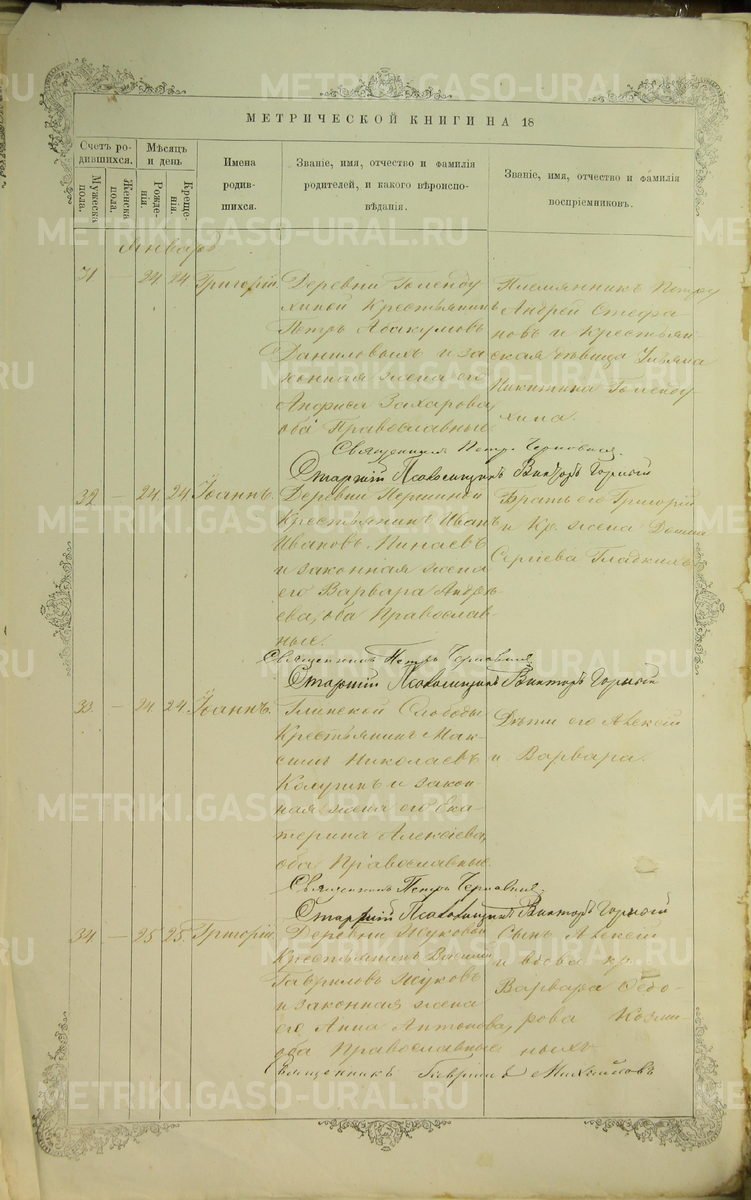 METRIKI.GASO-URAL.RU
МЕТРИЧЕСКОЙ КНИГИ НА 18
Счетъ родившихся.
Мужеска пола.
Женска пола.
Мѣсяцъ и день
Рожденія.
Крещенія.
Имена родившихся.
Званіе, имя, отчество и фамилія
родителей, и какого вѣроисповѣданія.
Званіе, имя, отчество и фамилія
воспріемниковъ.
Январь
31 — 24 24 Григорій
Деревни
Крестьянинъ
Петръ Абакумовъ
Даниловыхъ и за
конная жена его
Захарова
оба Православные.
Племянникъ Петру
Андрей Стефа
новъ и Крестьян
ская дѣвица
Никитина
Священникъ Петръ
Старшій Псаломщикъ Викторъ Горный
32 — 24 24 Іоаннъ.
Деревни Першиной
Крестьянинъ Иванъ
Ивановъ Минаевъ
и законная жена
его Варвара Андрѣ
ева, оба Православ
ные.
Братъ его Григорій
и Кр. жена
Сергіева Гладкихъ
Священникъ Петръ
Старшій Псаломщикъ Викторъ Горный
33 — 24 24 Іоаннъ.
Глинской Слободы
Крестьянинъ Мак
симъ Николаевъ
и закон
ная жена его Ека
терина Алексіева,
оба Православные.
Дѣти его Алексій
и Варвара.
Священникъ Петръ
Старшій Псаломщикъ Викторъ Горный
34 — 25 25 Григорій
Деревни Жуковой
Крестьянинъ Василій
Гавриловъ Жуковъ
и законная жена
его Анна Антонова,
оба Православные
Сынъ Алексій
и вдова кр.
Варвара Ѳедо
рова Козми
ныхъ
Священникъ Гавріилъ